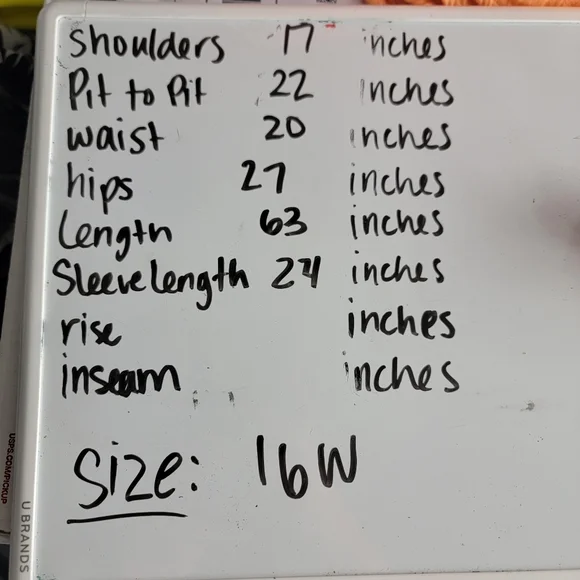 Shoulders 17 inches
Pit to Pit 22 inches
waist 20 inches
hips 27 inches
Length 63 inches
Sleeve length 24 inches
rise inches
inseam inches
Size: 16W
USPS.COM/PICKUP
U BRANDS